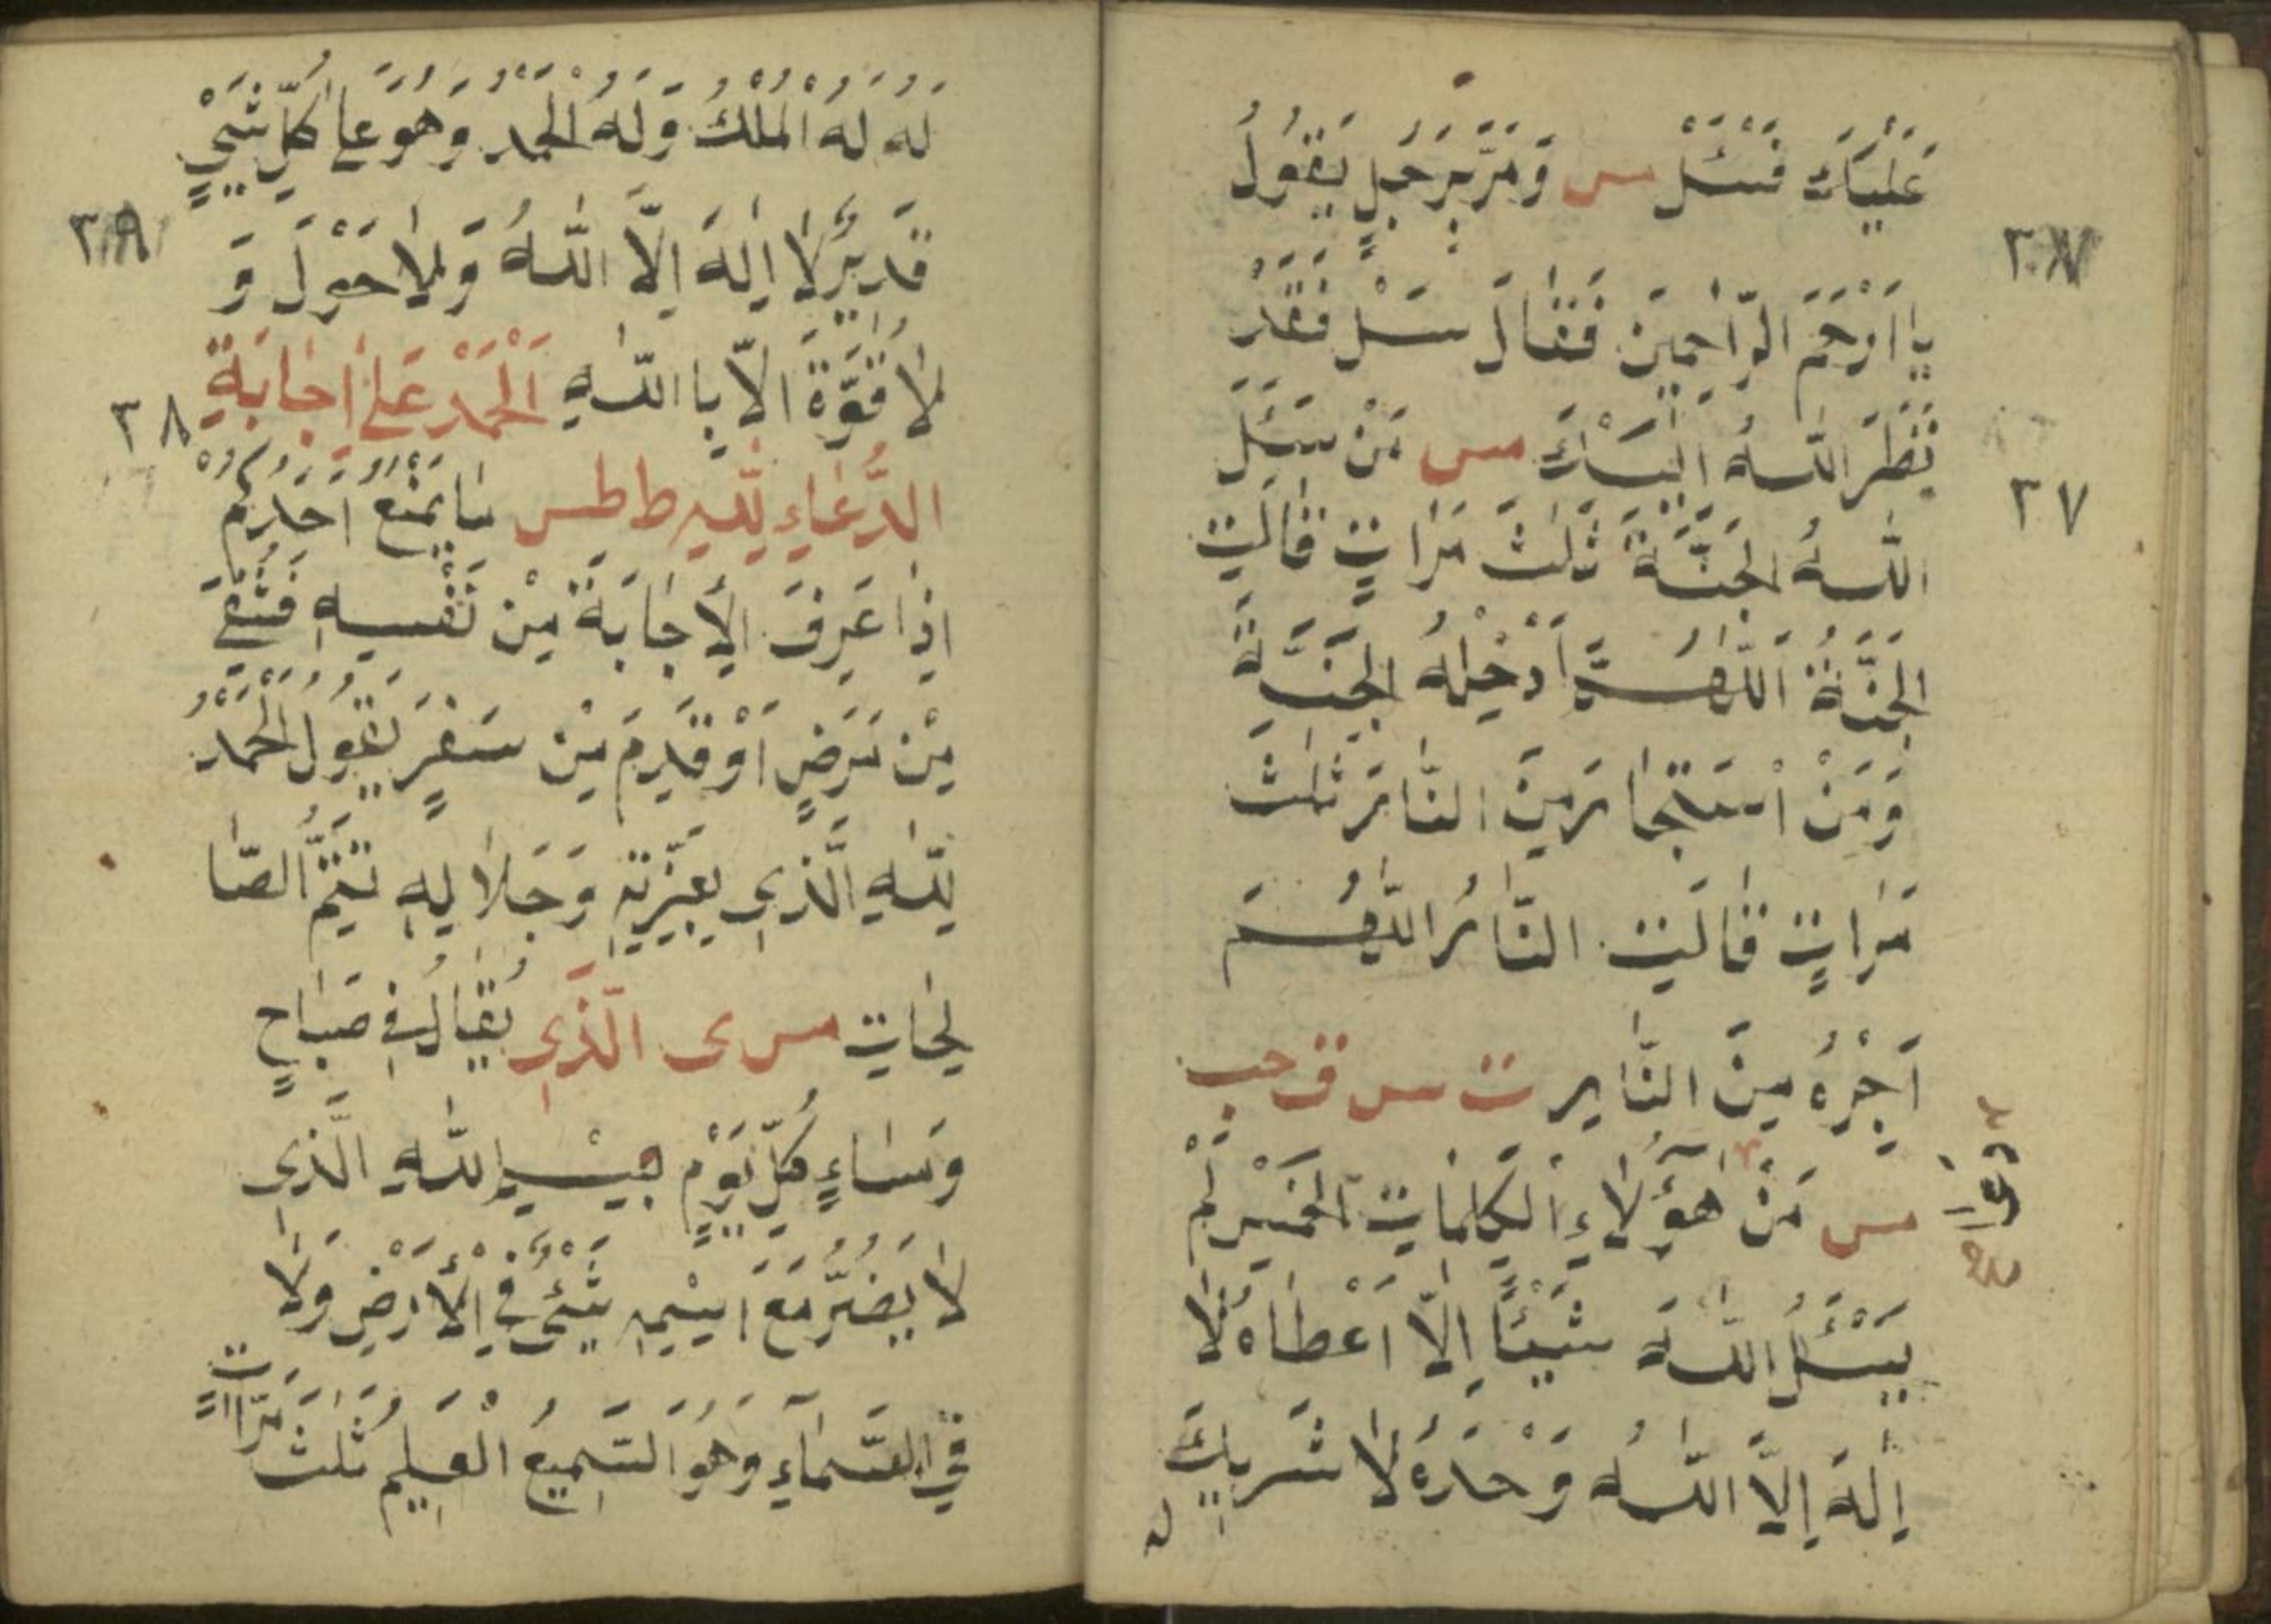 عَلَيْكَ فَسْئَلْ مس وَمَرَّ بِرَجُلٍ يَقُولُ
يَا اَرْحَمَ الرَّاحِمِينَ فَقَالَ سَلْ فَقَدْ
نَظَرَ اللّٰهُ اِلَيْكَ مس مَنْ سَئَلَ
اللّٰهُ الجَنَّةَ ثَلٰثَ مَرَّاتٍ قَالَتِ
الجَنَّةُ اَللّٰهُمَّ اَدْخِلْهُ الجَنَّةَ
وَمَنْ اسْتَجَارَ مِنَ النَّارِ ثَلٰثَ
مَرَّاتٍ قَالَتِ النَّارُ اللّٰهُمَّ
اَجِرْهُ مِنَ النَّارِ ت س ق حب
مس مَنْ هٰؤُلَاءِ الْكَلِمَاتِ الخَمْسِ لَمْ
دعا
يَسْئَلِ اللّٰهَ شَيْئًا اِلَّا اَعْطَاهُ لَا
اِلٰهَ اِلَّا اللّٰهُ وَحْدَهُ لَا شَرِيكَ
له
٢٧
لَهُ لَهُ الْمُلْكُ وَلَهُ الْحَمْدُ وَهُوَ عَلٰى كُلِّ شَيْءٍ
قَدِيرٌ لَا اِلٰهَ اِلَّا اللّٰهُ وَلَا حَوْلَ وَ
لَا قُوَّةَ اِلَّا بِا اللّٰهِ اَلْحَمْدُ عَلٰى اِجَابَةِ
٢٨
الدُّعَاءِ لِلّٰهِ ط طس مَا يَمْنَعُ اَحَدَكُمْ
اِذَا عَرِفَ الْاِجَابَةَ مِنْ نَفْسِهِ فَشُفِيَ
مِنْ مَرَضٍ اَوْ قَدِمَ مِنْ سَفَرٍ يَقُولُ الْحَمْدُ
لِلّٰهِ الَّذِي بِعِزَّتِهِ وَجَلَالِهِ تَتِمُّ الصَّا
لِحَاتِ مس ى الَّذِي يُقَالُ فِي صَبَاحٍ
وَمَسَاءٍ كُلِّ يَوْمٍ بِسْمِ اللّٰهِ الَّذِي
لَا يَضُرُّ مَعَ اسْمِهِ شَيْءٌ فِي الْاَرْضِ وَلَا
فِي السَّمَآءِ وَهُوَ السَّمِيعُ الْعَلِيمُ ثَلٰثَ مَرَّاتٍ